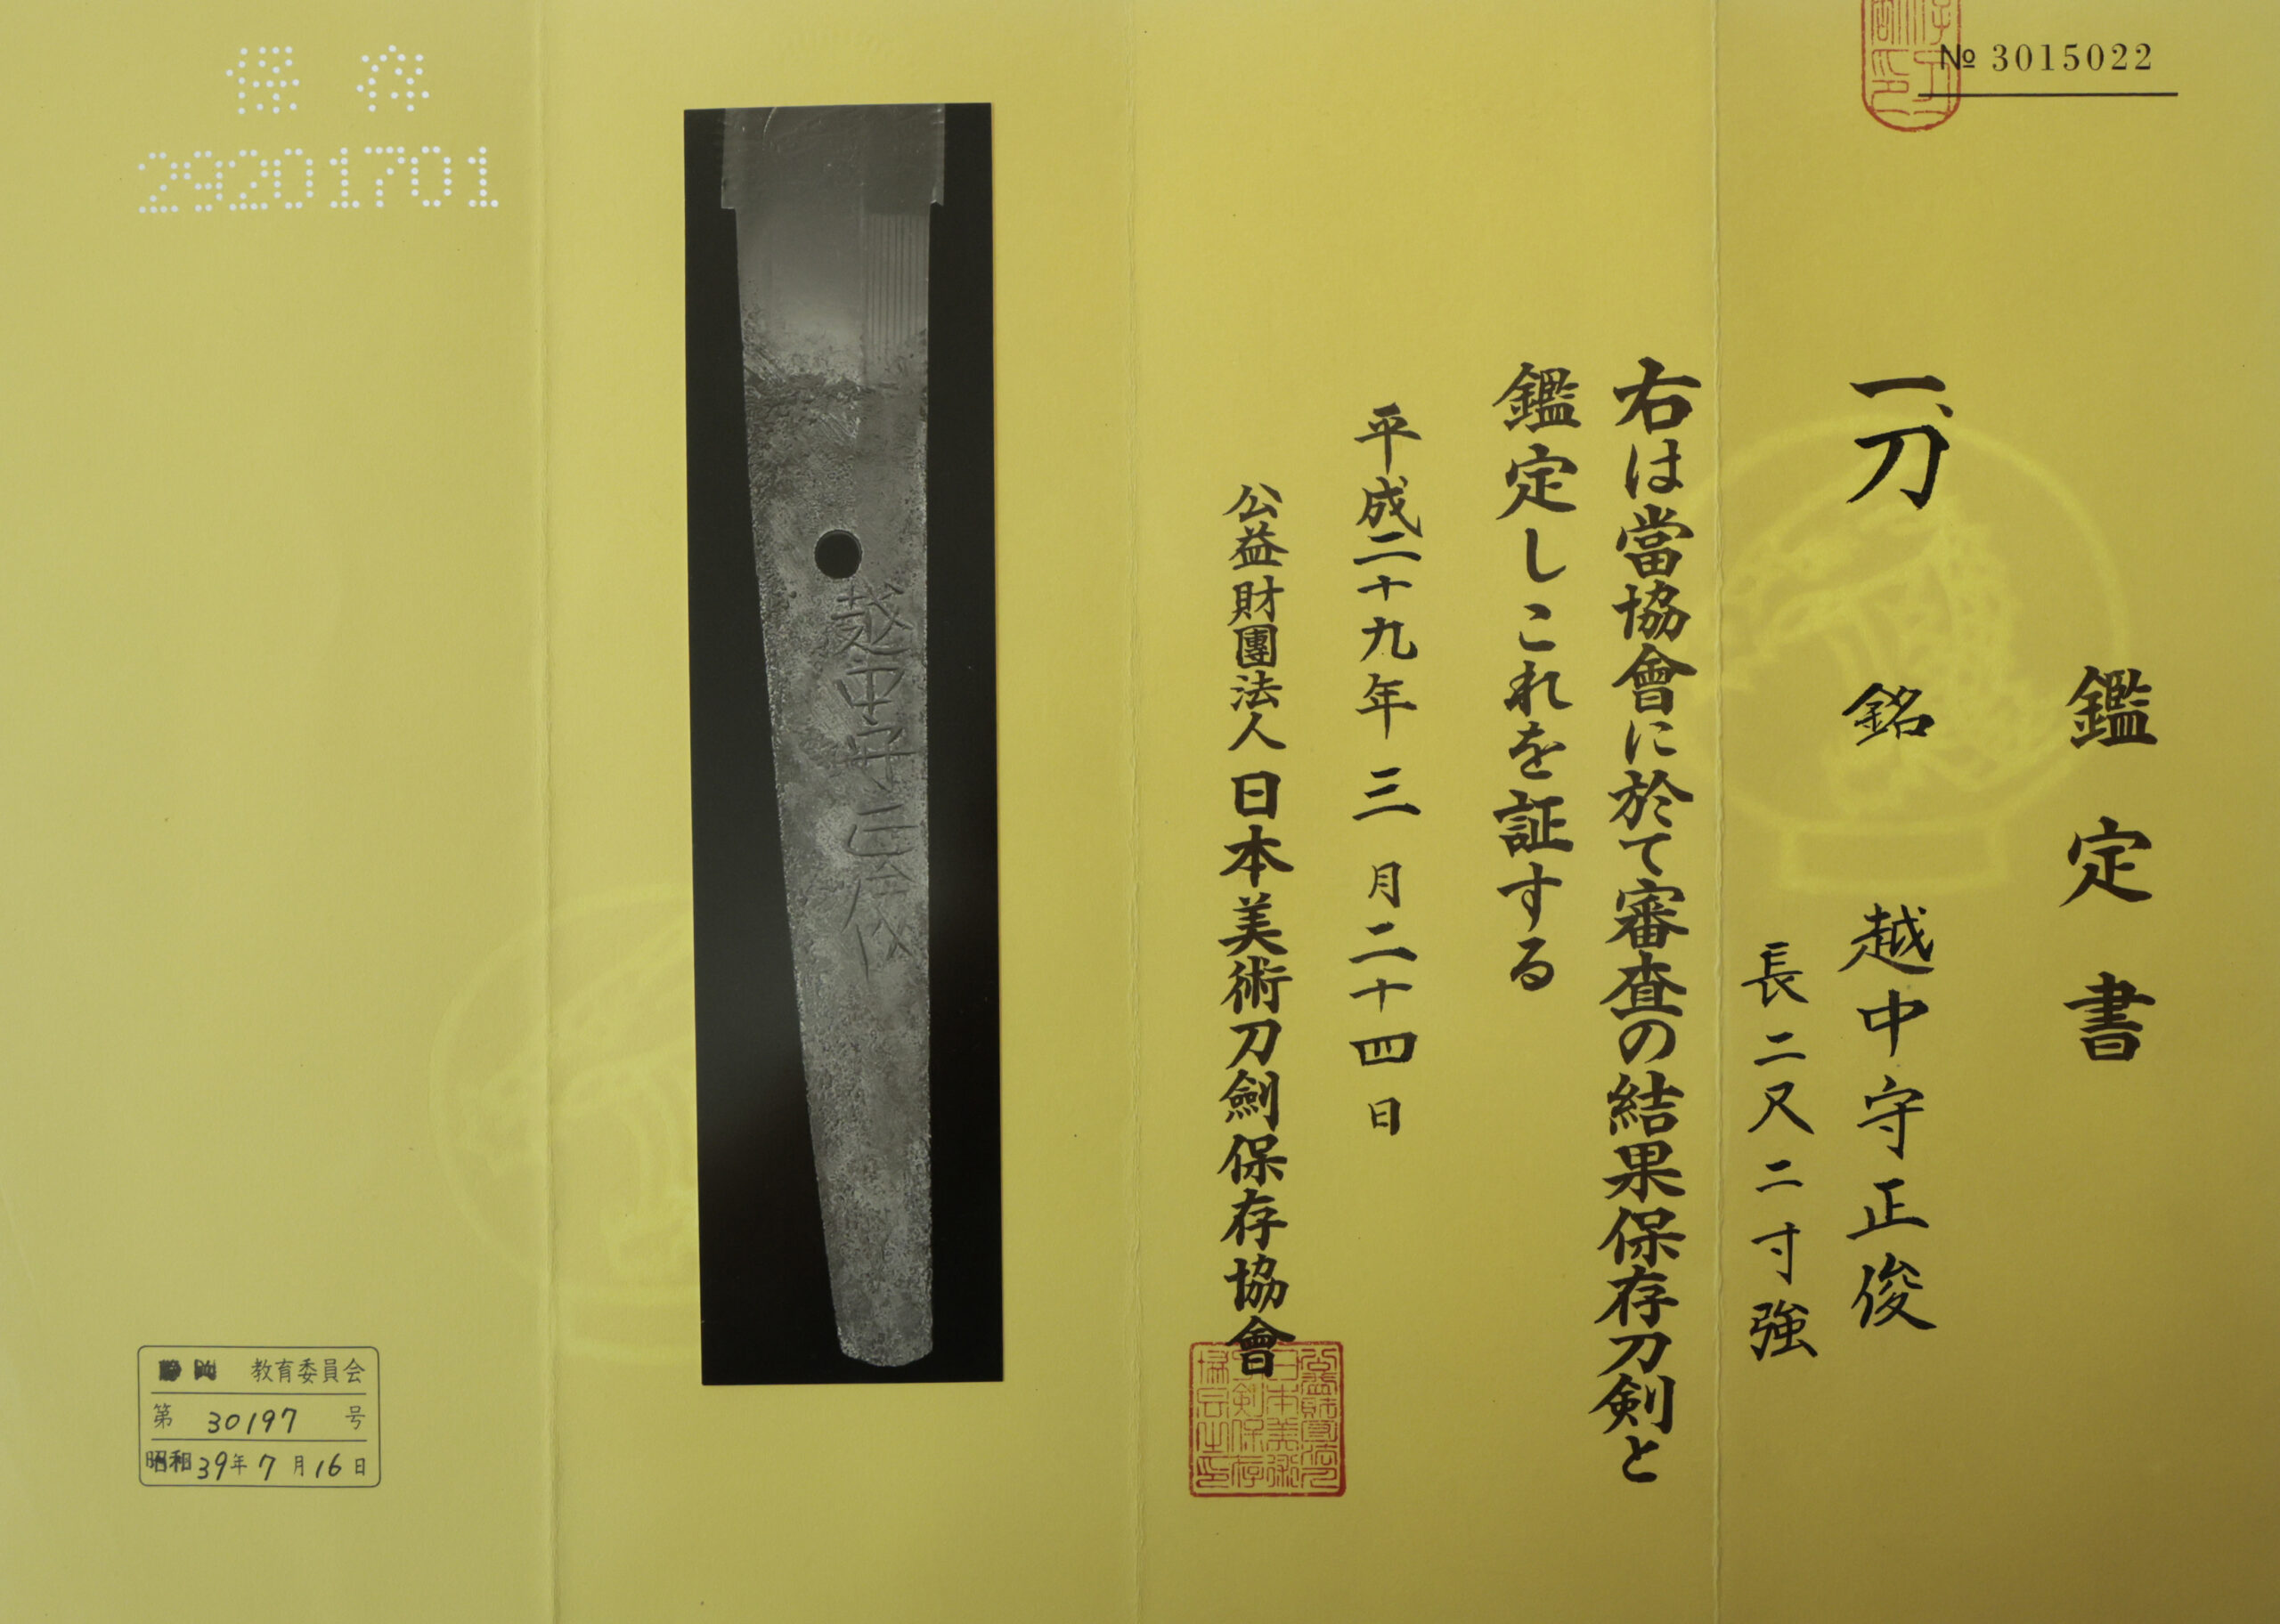 № 3015022
鑑定書
一、刀 銘 越中守正俊
長二尺二寸強
右は當協會に於て審査の結果保存刀剣と
鑑定しこれを証する
平成二十九年三月二十四日
公益財團法人日本美術刀劍保存協會
越中守正俊
保存
29201701
静岡 教育委員会
第 30197 号
昭和39年7月16日